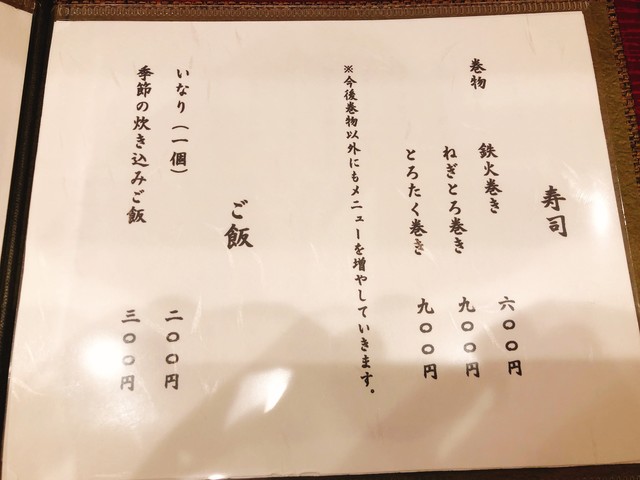 寿司
巻物
鉄火巻き 六〇〇円
ねぎとろ巻き 九〇〇円
とろたく巻き 九〇〇円
※今後巻物以外にもメニューを増やしていきます。
ご飯
いなり（一個） 二〇〇円
季節の炊き込みご飯 三〇〇円